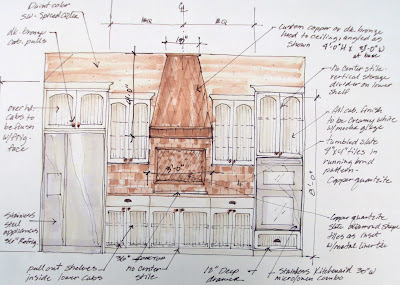 Paint color
SW- Spiced Cider
dk. bronze
cab. pulls
over ht.
cabs to
be flush
w/ frig.
face
stainless
steel
appliances
36" Refrig.
EQ
EQ
18"
custom copper or dk. bronze
hood to ceiling, angled as
shown
4'-0" H x 3'-0" W
at base
no center stile
vertical storage
divider on lower
shelf
All cab. finish
to be creamy white
w/ mocha glaze
Tumbled slate
4"x4" tiles in
running bond
pattern-
Copper quartzite
Copper quartzite
slate diamond shape
tiles as inset
w/ metal liner tile
3'-0"
8'-0"
pull out shelves
inside lower cabs
36"
no center
stile
10" Deep
drawers
stainless KitchenAid 30" W
micro/oven combo